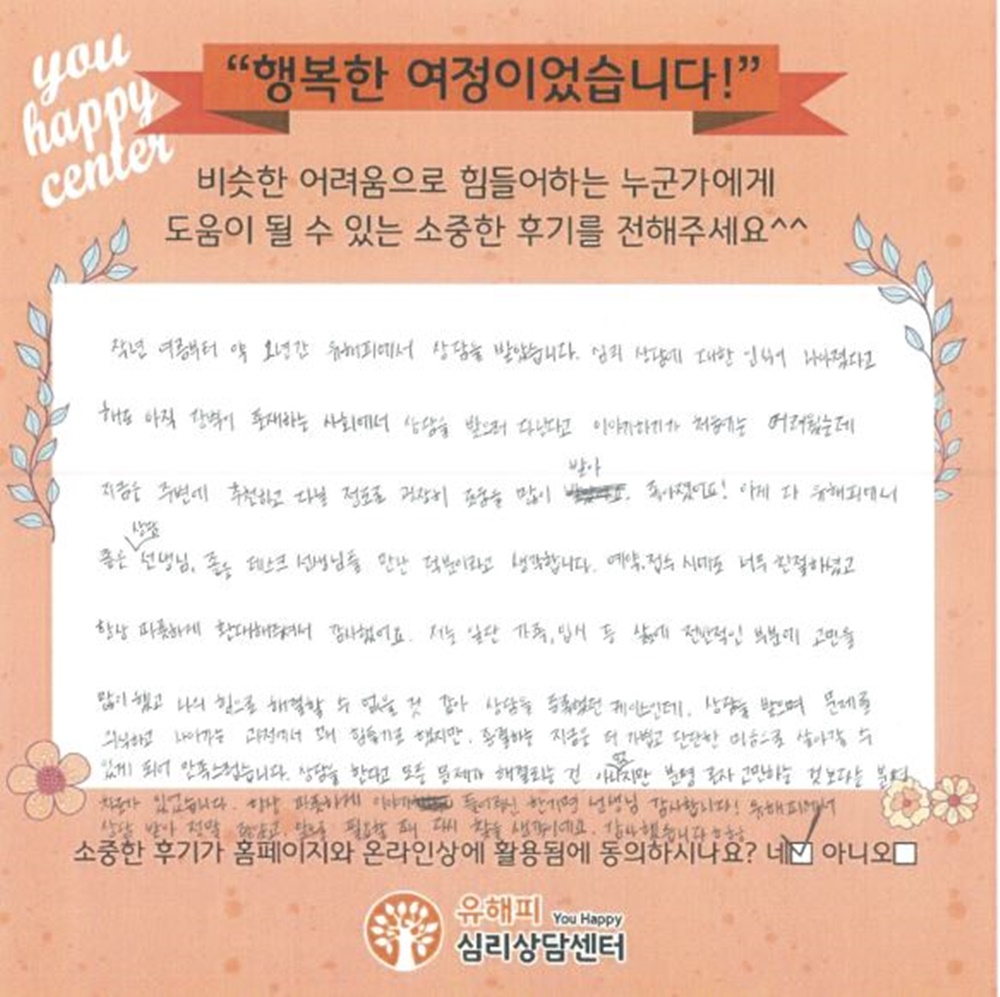 you
happy
center
“행복한 여정이었습니다!”
비슷한 어려움으로 힘들어하는 누군가에게
도움이 될 수 있는 소중한 후기를 전해주세요^^
작년 여름부터 약 유해피에서 상담을 받았습니다. 심리 상담에 대한 인식이 나아졌다고
해도 아직 장벽이 존재하는 사회에서 상담을 받으러 다닌다고 이야기하기가 처음에는 어려웠는데
받아
지금은 주변에 추천하고 다닐 정도로 굉장히 도움을 많이 좋아졌어요! 이게 다 유해피에서
상담
좋은 선생님, 좋은 데스크 선생님들 만난 덕분이라고 생각합니다. 예약, 접수 시에도 너무 친절하셨고
항상 따뜻하게 환대해주셔서 감사했어요. 저는 일단 가족, 입시 등 삶에 전반적인 부분에 고민을
많이 했고 나의 힘으로 해결할 수 없을 것 같아 상담을 등록했던 케이스인데, 상담을 받으며 문제를
의식하고 나아가는 과정에서 힘들기도 했지만, 종결하는 지금은 더 가볍고 단단한 마음으로 살아갈 수
있게 되어 만족스럽습니다. 상담을 한다고 모든 문제가 해결되는 건 아니지만 분명 혼자 고민하는 것보다는 분명
있었습니다. 항상 따뜻하게 이야기 들어주신 선생님 감사합니다! 유해피에서
상담 받아 정말 필요할 때 다시 찾을 생각이에요. 감사했습니다
소중한 후기가 홈페이지와 온라인상에 활용됨에 동의하시나요? 네☑ 아니오□
유해피 You Happy
심리상담센터